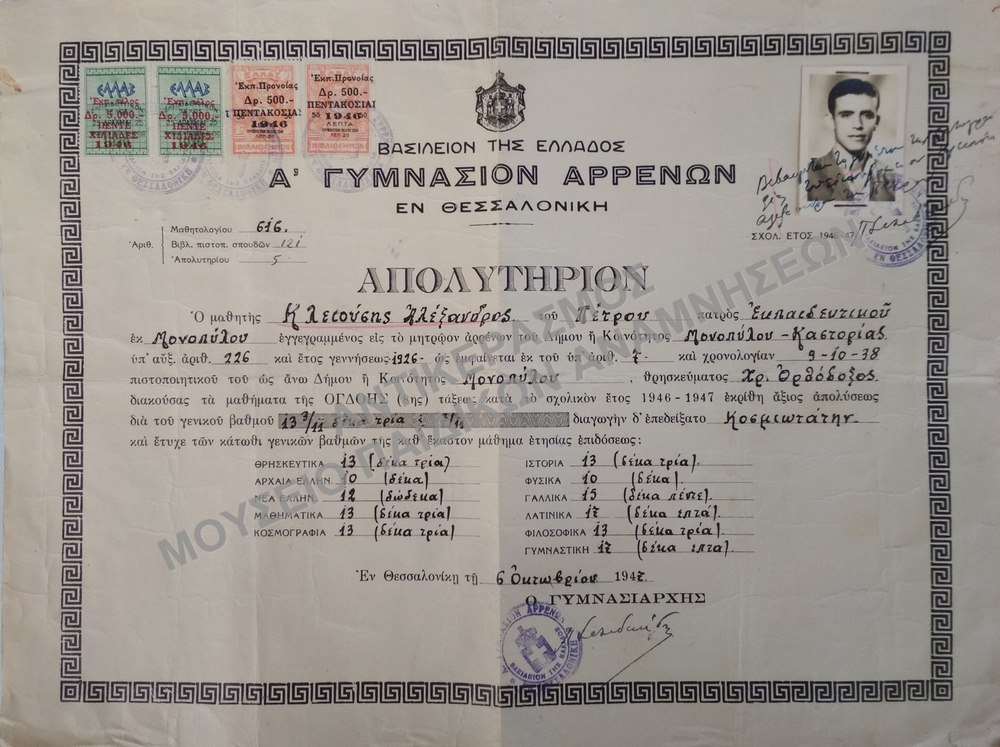 ΕΛΛΑΣ ΕΛΛΑΣ ΕΛΛΑΣ
Ἐκπ. τέλος Ἐκπ. τέλος Ἐκπ. Προνοίας Ἐκπ. Προνοίας
Δρ. 5.000.- Δρ. 5.000.- Δρ. 500.- Δρ. 500.-
ΠΕΝΤΕ ΠΕΝΤΕ ΠΕΝΤΑΚΟΣΙΑΙ ΠΕΝΤΑΚΟΣΙΑΙ
ΧΙΛΙΑΔΕΣ ΧΙΛΙΑΔΕΣ
1946 1946 1946 1946
ΒΙΒΛΙΟΣΗΜΟΝ ΒΙΒΛΙΟΣΗΜΟΝ
ΒΑΣΙΛΕΙΟΝ ΤΗΣ ΕΛΛΑΔΟΣ
Α' ΓΥΜΝΑΣΙΟΝ ΑΡΡΕΝΩΝ
ΕΝ ΘΕΣΣΑΛΟΝΙΚΗ
Ἀριθ.
Μαθητολογίου 616.
Βιβλ. πιστοπ. σπουδῶν 121
Ἀπολυτηρίου 5.
ΣΧΟΛ. ΕΤΟΣ 1946-47
ΑΠΟΛΥΤΗΡΙΟΝ
Ὁ μαθητὴς Κλεσούσης Ἀλέξανδρος. τοῦ Πέτρου πατρὸς Ἐκπαιδευτικοῦ
ἐκ Μονοπύλου ἐγγεγραμμένος εἰς τὸ μητρῷον ἀρρένων τοῦ Δήμου ἢ Κοινότητος Μονοπύλου-Καστορίας
ὑπ' αὐξ. ἀριθ. 226 καὶ ἔτος γεννήσεως 1926- ὡς ἐμφαίνεται ἐκ τοῦ ὑπ' ἀριθ. 7- καὶ χρονολογίαν 9-10-38
πιστοποιητικοῦ τοῦ ὡς ἄνω Δήμου ἢ Κοινότητος Μονοπύλου, θρησκεύματος Χρ. Ὀρθόδοξος
διακούσας τὰ μαθήματα τῆς ΟΓΔΟΗΣ (8ης) τάξεως κατὰ τὸ σχολικὸν ἔτος 1946-1947 ἐκρίθη ἄξιος ἀπολύσεως
διὰ τοῦ γενικοῦ βαθμοῦ 13 3/11 δέκα τρία κ 3/11 διαγωγὴν δ' ἐπεδείξατο Κοσμιωτάτην.
καὶ ἔτυχε τῶν κάτωθι γενικῶν βαθμῶν τῆς καθ' ἕκαστον μάθημα ἐτησίας ἐπιδόσεως:
ΘΡΗΣΚΕΥΤΙΚΑ 13 (δέκα τρία) ΙΣΤΟΡΙΑ 13 (δέκα τρία).
ΑΡΧΑΙΑ ΕΛΛΗΝ. 10 (δέκα) ΦΥΣΙΚΑ 10 (δέκα).
ΝΕΑ ΕΛΛΗΝ. 12 (δώδεκα) ΓΑΛΛΙΚΑ 15 (δέκα πέντε).
ΜΑΘΗΜΑΤΙΚΑ 13 (δέκα τρία) ΛΑΤΙΝΙΚΑ 17 (δέκα επτά).
ΚΟΣΜΟΓΡΑΦΙΑ 13 (δέκα τρία) ΦΙΛΟΣΟΦΙΚΑ 13 (δέκα τρία).
ΓΥΜΝΑΣΤΙΚΗ 17 (δέκα επτα).
Ἐν Θεσσαλονίκῃ τῇ 6 Ὀκτωβρίου 1947.
Ὁ ΓΥΜΝΑΣΙΑΡΧΗΣ
ΑΝΤΙΚΕΡΑΣΜΟΣ
ΜΟΥΣΕΙΟ ΠΑΙΔΙΚΩΝ ΑΝΑΜΝΗΣΕΩΝ